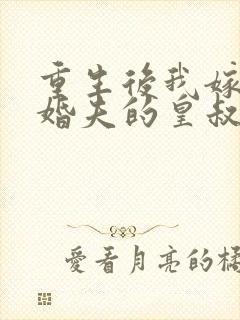 重生後我嫁
婚夫的皇叔
愛看月亮的橘